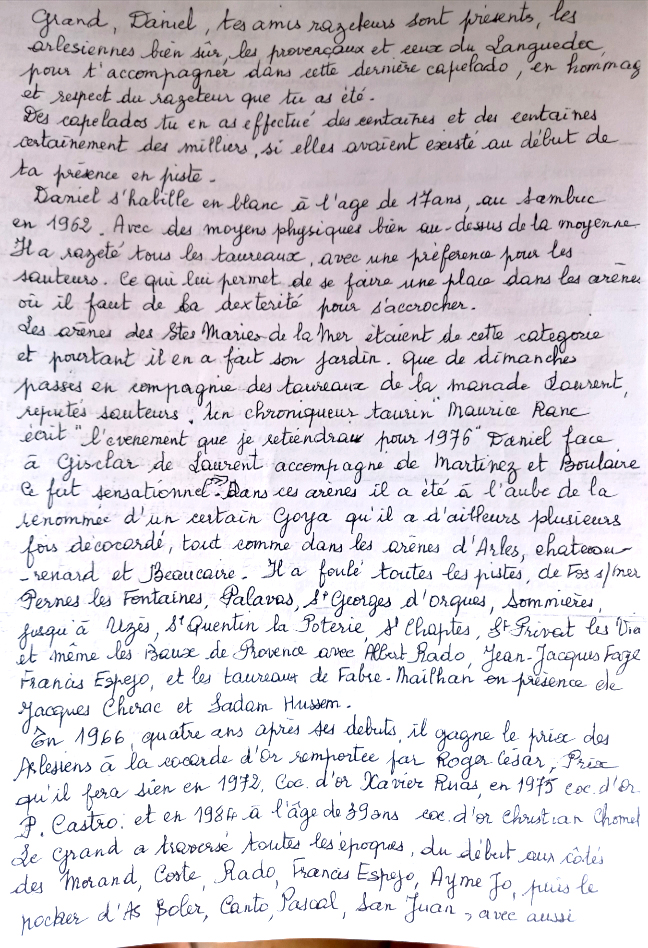 Grand, Daniel, tes amis razeteurs sont présents, les
arlesiennes bien sûr, les provençaux et ceux du Languedoc,
pour t'accompagner dans cette dernière capelado, en hommag
et respect du razeteur que tu as été.
Des capelados tu en as effectué des centaines et des centaines
certainement des milliers, si elles avaient existé au début de
ta présence en piste.
Daniel s'habille en blanc à l'age de 17ans, au Sambuc
en 1962. Avec des moyens physiques bien au-dessus de la moyenne.
Il a razeté tous les taureaux, avec une préference pour les
sauteurs. Ce qui lui permet de se faire une place dans les arènes
où il faut de la dexterité pour s'accrocher.
Les arènes des Stes Maries de la Mer étaient de cette categorie
et pourtant il en a fait son jardin. Que de dimanches
passés en compagnie des taureaux de la manade Laurent,
reputés sauteurs. Un chroniqueur taurin "Maurice Ranc
écrit "l'evenement que je retiendrau pour 1976" Daniel face
à Gisclar de Laurent accompagné de Martinez et Boulaire
Ce fut sensationnel. Dans ces arènes il a été à l'aube de la
renommée d'un certain Goya qu'il a d'ailleurs plusieurs
fois décocardé, tout comme dans les arènes d'Arles, chateau-
-renard et Beaucaire. Il a foulé toutes les pistes, de Fos s/mer
Pernes les Fontaines, Palavas, St Georges d'orques, Sommières,
jusqu'à Uzès, St Quentin la Poterie, St Chaptes, St Privat les Vieu
et même les Baux de Provence avec Albert Rado, Jean-Jacques Fage
Francis Espejo, et les taureaux de Fabre-Mailhan en présence de
Jacques Chirac et Sadam Hussem.
En 1966, quatre ans après ses debuts, il gagne le prix des
Arlesiens à la cocarde d'Or remportée par Roger César, Prix
qu'il fera sien en 1972, Coc. d'or Xavier Ruas, en 1975 coc. d'or
P. Castro. et en 1984 à l'âge de 39ans coc. d'or Christian Chomel
Le Grand a traversé toutes les époques, du début aux côtés
des Morand, Coste, Rado, Francis Espejo, Ayme Jo, puis le
pocker d'As Soler, Canto, Pascal, San Juan, avec aussi